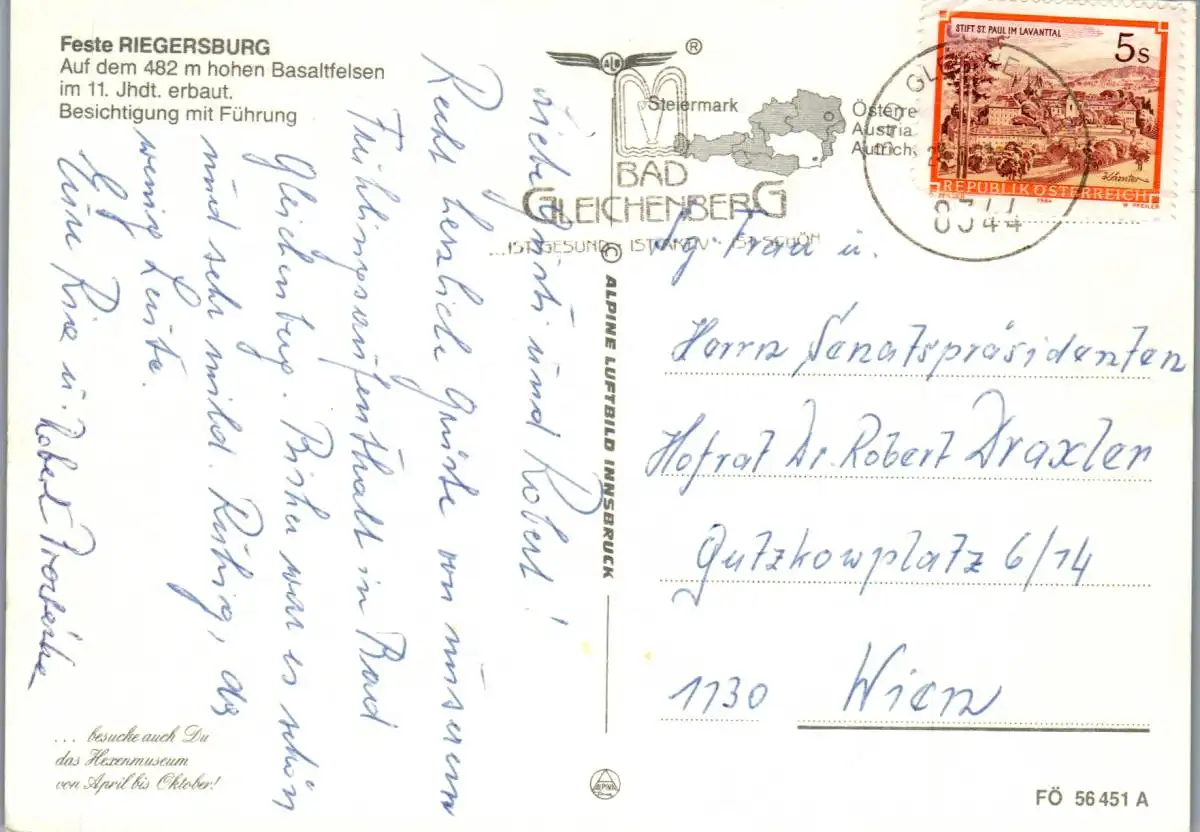 Feste RIEGERSBURG
Auf dem 482 m hohen Basaltfelsen
im 11. Jhdt. erbaut.
Besichtigung mit Führung
Liebe Christl und Robert!
Recht herzliche Grüße von unserem
Frühlingsaufenthalt in Bad
Gleichenberg. Bisher war es schön
und sehr mild. Ruhig, da
wenig Leute.
Eure Risa u. Robert
... besuche auch Du
das Hexenmuseum
von April bis Oktober!
ALB
®
Steiermark
Österre
Austria
Autrich
BAD
GLEICHENBERG
...IST GESUND · IST AKTIV · IST SCHÖN
8344
STIFT ST. PAUL IM LAVANTTAL
5 S
REPUBLIK ÖSTERREICH
1984
© ALPINE LUFTBILD INNSBRUCK
Sg. Frau u.
Herrn Senatspräsidenten
Hofrat Dr. Robert Draxler
Gutzkowplatz 6/14
1130 Wien
ALPINE
FÖ 56 451 A